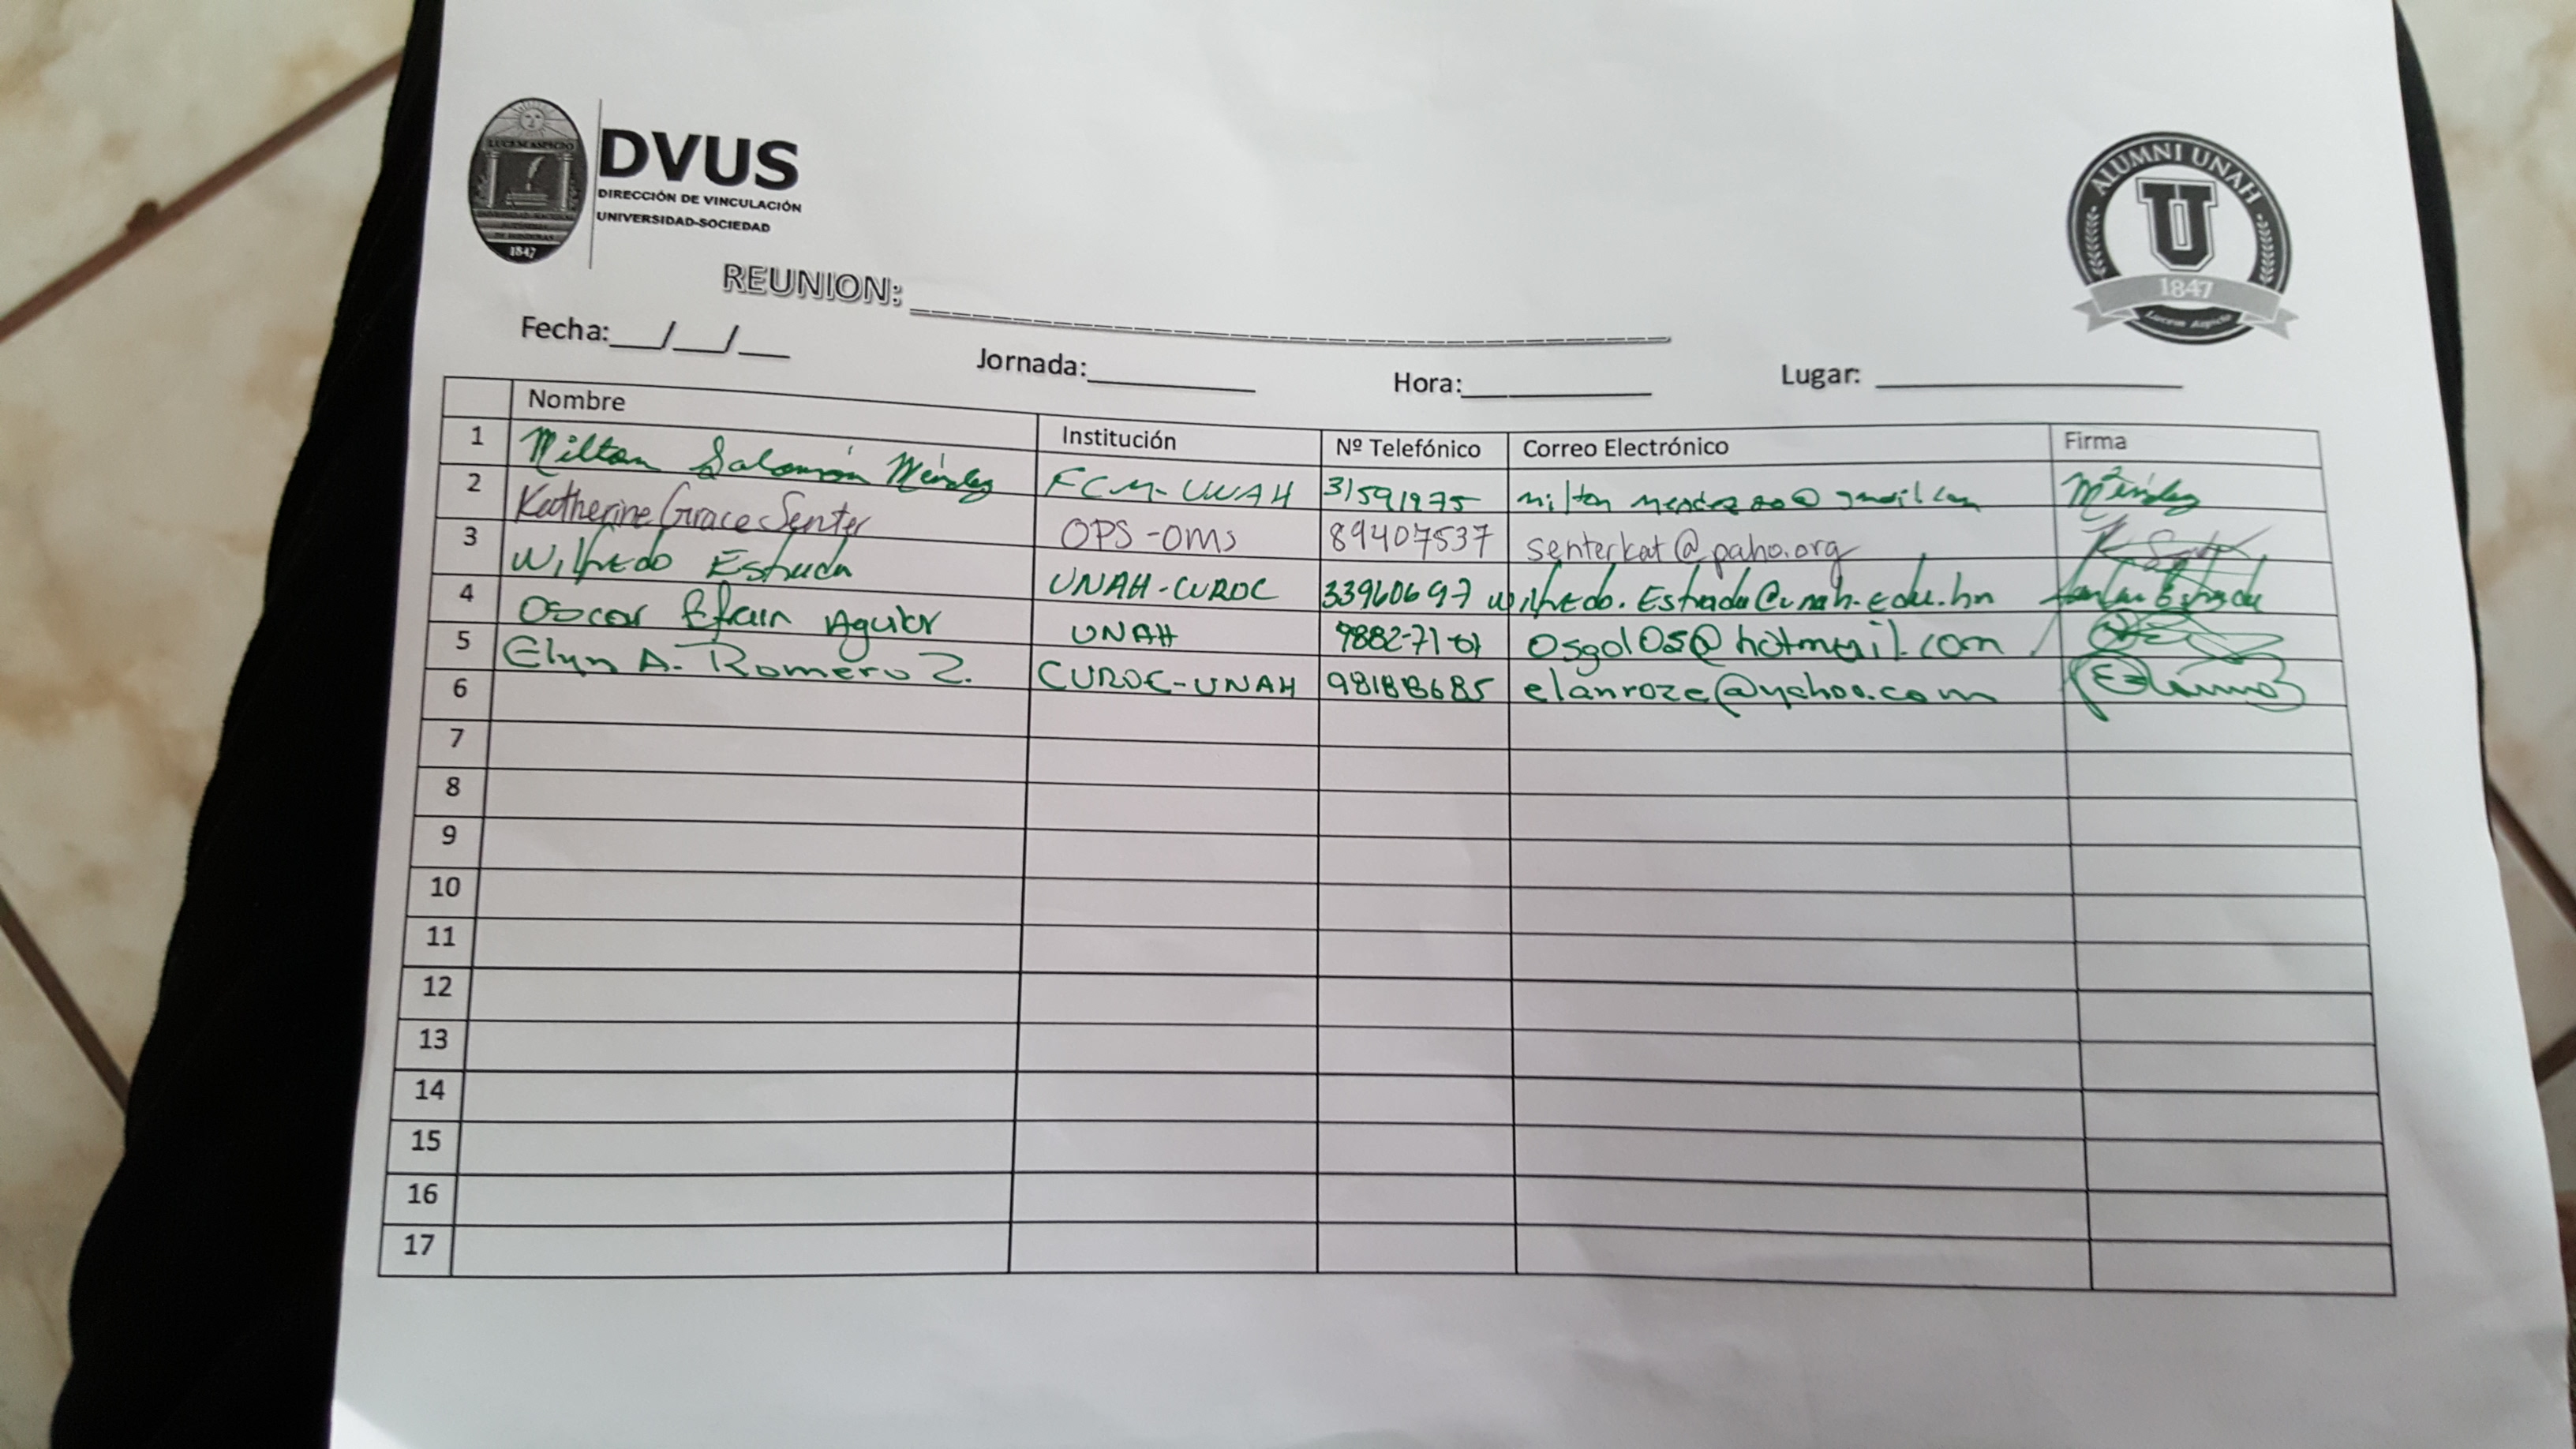 LUCEM ASPICIO
1847
DVUS
DIRECCIÓN DE VINCULACIÓN
UNIVERSIDAD-SOCIEDAD
ALUMNI UNAH
U
1847
Lucem Aspicio
REUNION: ____________________
Fecha:___/___/___ Jornada:__________ Hora:__________ Lugar: __________
Nombre Institución Nº Telefónico Correo Electrónico Firma
1 Milton Salomón Méndez FCM-UNAH 31591975 Méndez
2 Katherine Grace Senter OPS-OMS 89407537 senterkat@paho.org
3 Wilfredo Estrada UNAH-CUROC 33960697 wilfredo.Estrada@unah.edu.hn
4 Oscar Efrain Aguilar UNAH osgal05@hotmail.com
5 Elyn A. Romero Z. CUROC-UNAH 98188685 elanroze@yahoo.com
6
7
8
9
10
11
12
13
14
15
16
17